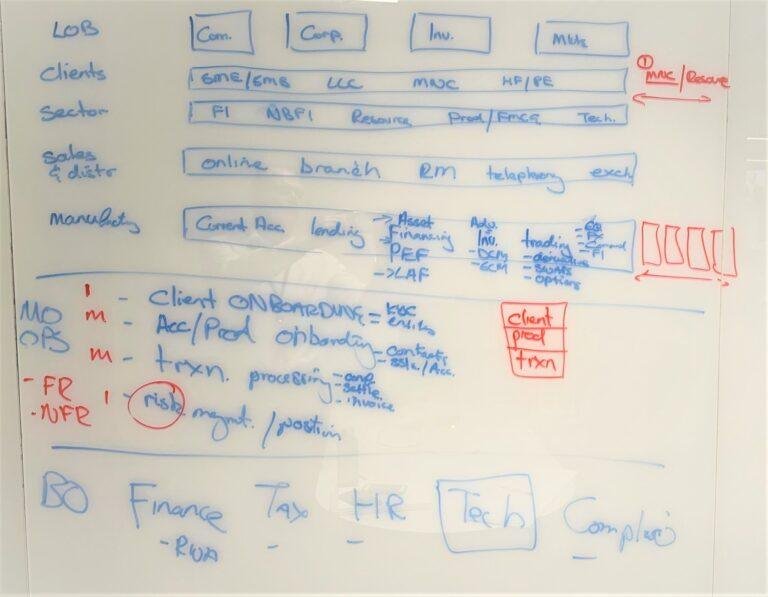 LOB Com. Corp. Inv. Mkts
Clients SME/SMB LLC MNC HF/PE
① MNC/Resource
Sector FI NBFI Resource Prod/FMCG Tech.
Sales & distr online branch RM telephony exch
Current Acc lending
-> Asset Financing
PEF
-> LAF
Adv.
Inv.
- DCM
- ECM
trading
- derivatives
- swaps
- options
- EQ
- FX
- Command
- FI
MO
OPS
1 - Client ONBOARDING = KYC
m - Acc/Prod onboarding - Contracts
- SSIs/Acc.
m - trxn. processing - conf.
- settle.
- invoice
1 - risk mgmt. / position
- FR
- NFR
client
prod
trxn
BO Finance Tax HR Tech
- RWA